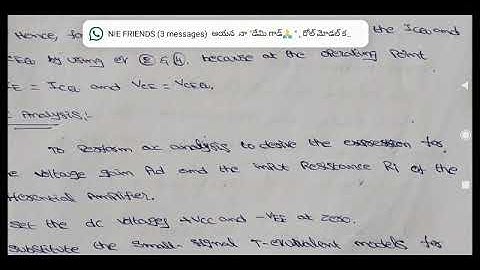 NIE FRIENDS (3 messages) ఆయన నా "డేమి గాడ్🙏", రోల్ మోడల్ క...
Hence, fo the ICQ
CEQ by using eq ② & ④, because at the operating Point
CE = ICQ and VCE = VCEQ.
C Analysis:-
To Perform ac analysis to derive the expression for
e voltage gain Ad and the input Resistance Ri of the
fferential Amplifier.
set the dc voltages +Vcc and -VEE at zero.
substitute the small-signal T-equivalent models for